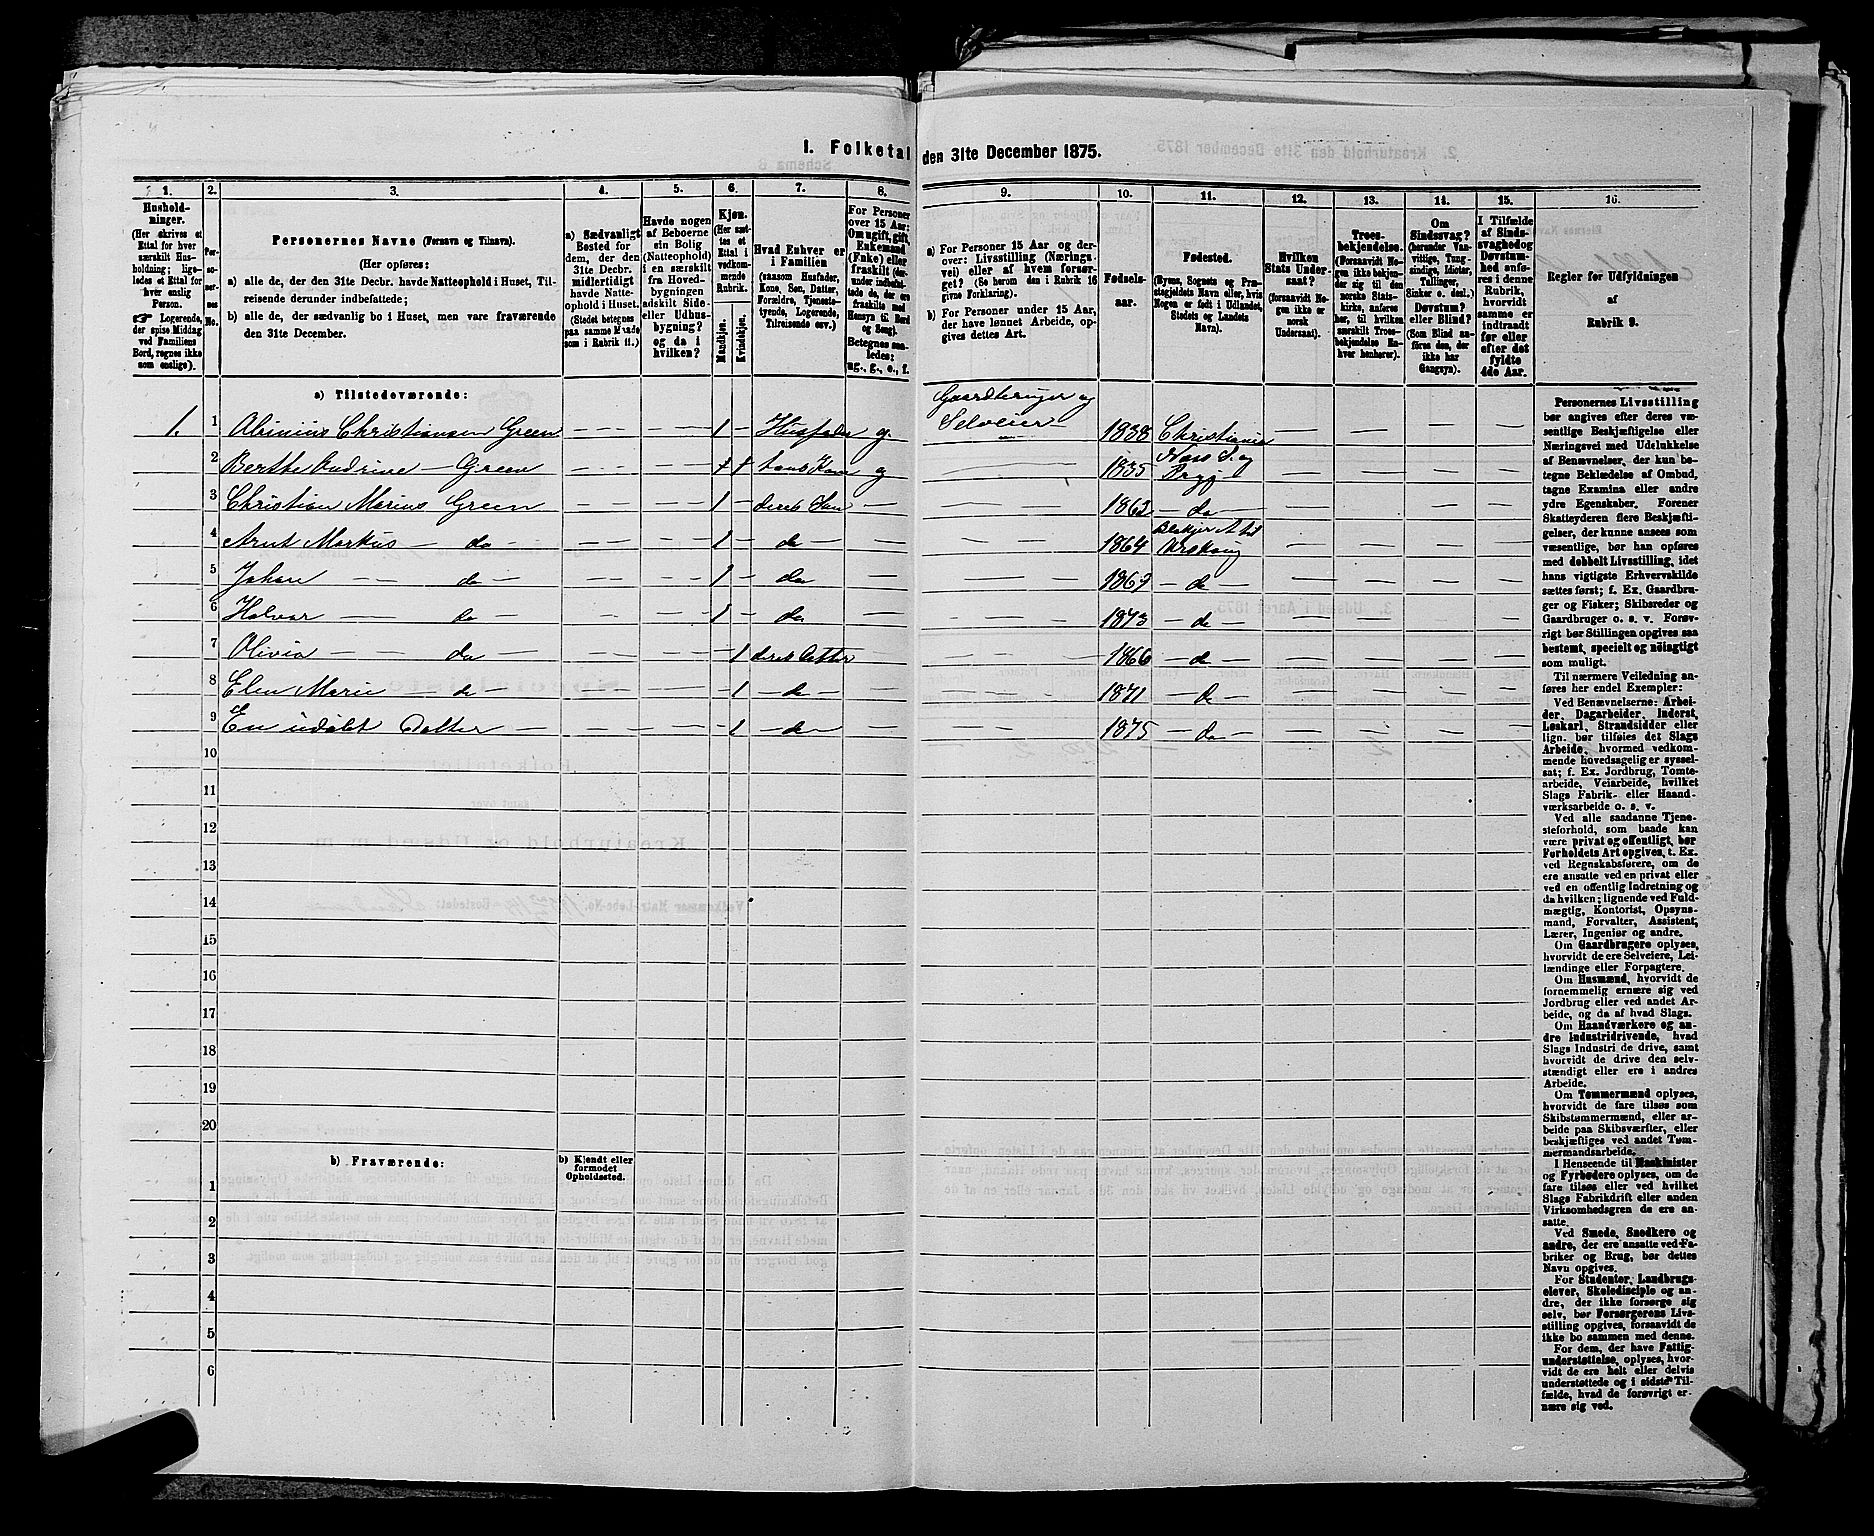 1. Folketal den 31te December 1875.
1.
Husholdninger.
(Her skrives et Ettal for hver særskilt Husholdning; ligeledes et Ettal for hver enslig Person.
☞ Logerende, der spise Middag ved Familiens Bord, regnes ikke som enslige).
2.
Personernes No.
3.
Personernes Navne (Fornavn og Tilnavn).
(Her opføres:
a) alle de, der den 31te Decbr. havde Natteophold i Huset, Tilreisende derunder indbefattede;
b) alle de, der sædvanlig bo i Huset, men vare fraværende den 31te December.
4.
a) Sædvanligt Bosted for dem, der den 31te Decbr. midlertidigt havde Natteophold i Huset.
(Stedet betegnes paa samme Maade som i Rubrik 11.)
5.
Havde nogen af Beboerne ein Bolig (Natteophold) i en særskilt fra Hovedbygningen adskilt Side- eller Udhusbygning? og da i hvilken?
6.
Kjøn.
(Her sættes et Ettal i vedkommende Rubrik.
Mandkjøn.
Kvindekjøn.
7.
Hvad Enhver er i Familien
(saasom Husfader, Kone, Søn, Datter, Forældre, Tjenestetyende, Logerende, Tilreisende osv.)
8.
For Personer over 15 Aar: Om ugift, gift, Enkemand (Enke) eller fraskilt (derunder indbefattede de, der ere fraskilte med Hensyn til Bord og Seng).
Betegnes saaledes:
ug., g., e., f.
9.
a) For Personer 15 Aar og derover: Livsstilling (Næringsvei) eller af hvem forsørget? (Se herom den i Rubrik 16 givne Forklaring).
b) For Personer under 15 Aar, der have lønnet Arbeide, opgives dettes Art.
10.
Fødselsaar.
11.
Fødested.
(Byens, Sognets og Præstegjeldets Navn eller, hvis Nogen er født i Udlandet, Stedets og Landets Navn).
12.
Hvilken Stats Undersaat?
(forsaavidt Nogen ikke er norsk Undersaat).
13.
Troesbekjendelse.
(Forsaavidt Nogen ikke bekjender sig til den norske Statskirke, anføres her, til hvilken særskilt Troesbekjendelse Enhver henhører).
14.
Om Sindssvag? (herunder Vanvittige, Tungsindige, Idioter, Tullinger, Sinker o. desl.) Døvstum? eller Blind? (Som Blind anføres den, der ikke har Gangsyn).
15.
I Tilfælde af Sindssvaghed og Døvstumhed anføres i denne Rubrik, hvorvidt samme er indtraadt før eller efter det fyldte 4de Aar.
16.
Regler for Udfyldningen
af
Rubrik 9.
a) Tilstedeværende:
Gaardbruger og
1. 1 Christiansen Green — — 1 Husfader g. Selveier 1838 Christiania — — — —
2 Berthe Andrine — Green — — 1 hans Kone g — 1835 Næs S. og Prgj — — — —
3 Christian Marius Green — — 1 — deres Søn — — 1862 — do — — — — —
4 Arnt Markus — do — — — 1 — do — — 1864 Blakjer A til Urskoug — — — —
5 Johan — — do — — — 1 — do — — 1869 — do — — — — —
6 Halvor — — do — — — 1 — do — — 1873 — do — — — — —
7 Olivia — do — — — 1 deres Datter — — 1866 — do — — — — —
8 Elen Marie — do — — — 1 — do — — 1871 — do — — — — —
9 En udøbt Datter — — — 1 — do — — 1875 — do — — — — —
10
11
12
13
14
15
16
17
18
19
20
b) Fraværende:
b) Kjendt eller formodet Opholdssted.
1
2
3
4
5
6
Personernes Livsstilling
bør angives efter deres væ-
sentlige Beskjæftigelse eller
Næringsvei med Udelukkelse
af Benævnelser, der kun be-
tegne Beklædelse af Ombud,
tagne Examina eller andre
ydre Egenskaber. Forener
Skatteyderen flere Beskjæfti-
gelser, der kunne ansees som
væsentlige, bør han opføres
med dobbelt Livsstilling, idet
hans vigtigste Erhvervskilde
sættes først; f. Ex. Gaardbru-
ger og Fisker; Skibsreder og
Gaardbruger o. s. v. Forøv-
rigt bør Stillingen opgives saa
bestemt, specielt og nøiagtigt
som muligt.
Til nærmere Veiledning an-
føres her endel Exempler:
Ved Benævnelserne: Arbei-
der, Dagarbeider, Inderst,
Løskarl, Strandsidder eller
lign. bør tilføies det Slags
Arbeide, hvormed vedkom-
mende hovedsagelig er syssel-
sat; f. Ex. Jordbrug, Tomte-
arbeide, Veiarbeide, hvilket
Slags Fabrik- eller Haand-
værksarbeide o. s. v.
Ved alle saadanne Tjene-
steforhold, som baade kan
være privat og offentligt, bør
Forholdets Art opgives, t. Ex.
ved Regnskabsførere, om de
ere ansatte ved en privat eller
ved en offentlig Indretning og
da hvilken; lignende ved Fuld-
mægtig, Kontorist, Opsyns-
mand, Forvalter, Assistent,
Lærer, Ingeniør og andre.
Om Gaardbrugere oplyses,
hvorvidt de ere Selveiere, Lei-
lændinge eller Forpagtere.
Om Husmænd, hvorvidt de
fornemmelig ernære sig ved
Jordbrug eller ved andet Ar-
beide, og da af hvad Slags.
Om Haandværkere og an-
dre Industridrivende, hvad
Slags Industri de drive, samt
hvorvidt de drive den selv-
stændigt eller ere i andres
Arbeide.
Om Tømmermænd oplyses,
hvorvidt de fare tilsøs som
Skibstømmermænd, eller ar-
beide paa Skibsværfter, eller
beskjæftiges ved andet Tøm-
mermandsarbeide.
I Henseende til Maskinister
og Fyrbødere oplyses, om de
fare tilsøs eller ved hvilket
Slags Fabrikdrift eller anden
Virksomhedsgren de ere an-
satte.
Ved Smede, Snedkere og
andre, der ere ansatte ved Fa-
briker og Brug, bør dettes
Navn opgives.
For Studenter, Landbrugs-
elever, Skoledisciple og an-
dre, der ikke forsørge sig
selv, bør Forsørgerens Livs-
stilling opgives, forsaavidt de
ikke bo sammen med denne.
For dem, der have Fattig-
understøttelse, oplyses, hvor-
vidt de ere helt eller delvis
understøttede og i sidste Til-
fælde, hvad de forøvrigt er-
nære sig ved.